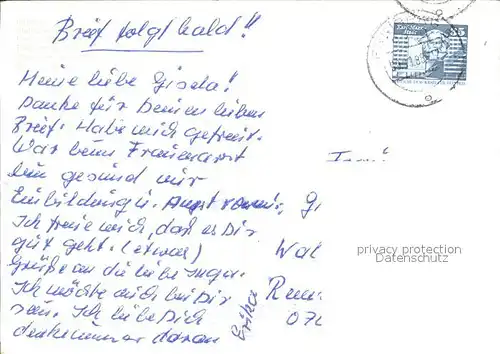 Brief folgt bald!!
Meine liebe Gisela!
Danke für Deinen lieben
Brief. Habe mich gefreut.
War beim Frauenarzt
bin gesund nur
Einbildung u. Angst
Ich freue mich, daß es Dir
gut geht. (etwas)
Grüße an die liebe Inga.
Ich möchte auch bei Dir
sein. Ich liebe Dich
denke immer daran
Erika
Wal
070
35
privacy protection
Datenschutz